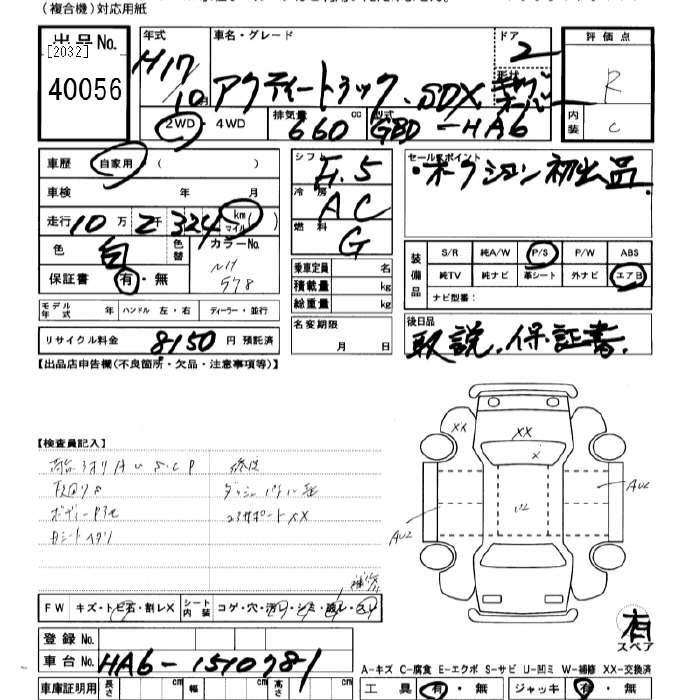 (複合機)対応用紙
出品No.
[2032]
40056
年式
H17
10月
車名・グレード
アクティートラック、SDX
ドア
2
形状
キャブオーバ
評価点
R
内装
C
2WD・4WD
排気量
660 cc
型式
GBD-HA6
車歴 自家用 ( )
車検 年 月
走行 10万2千324 km マイル
色 白 色替 カラーNo.
NH
578
保証書 有・無
シフト F.5
冷房 AC
燃料 G
乗車定員 名
積載量 kg
総重量 kg
セールスポイント
・オークション初出品.
装備品
S/R 純A/W P/S P/W ABS
純TV 純ナビ 革シート 外ナビ エアB
ナビ型番:
モデル年式 年 ハンドル 左・右 ディーラー・並行
リサイクル料金 8150 円 預託済
名変期限
月 日
後日品
取説.保証書.
【出品店申告欄(不良箇所・欠品・注意事項等)】
【検査員記入】
XX
XX
X
AU2
AU2
FW キズ・トビ石・割レX シート内装 コゲ・穴・汚レ・シミ・破レ・スレ
有
スペア
登録No.
車台No. HA6-1510781
A-キズ C-腐食 E-エクボ S-サビ U-凹ミ W-補修 XX-交換済
車庫証明用 長さ cm 幅 cm 高さ cm
工具 有・無 ジャッキ 有・無